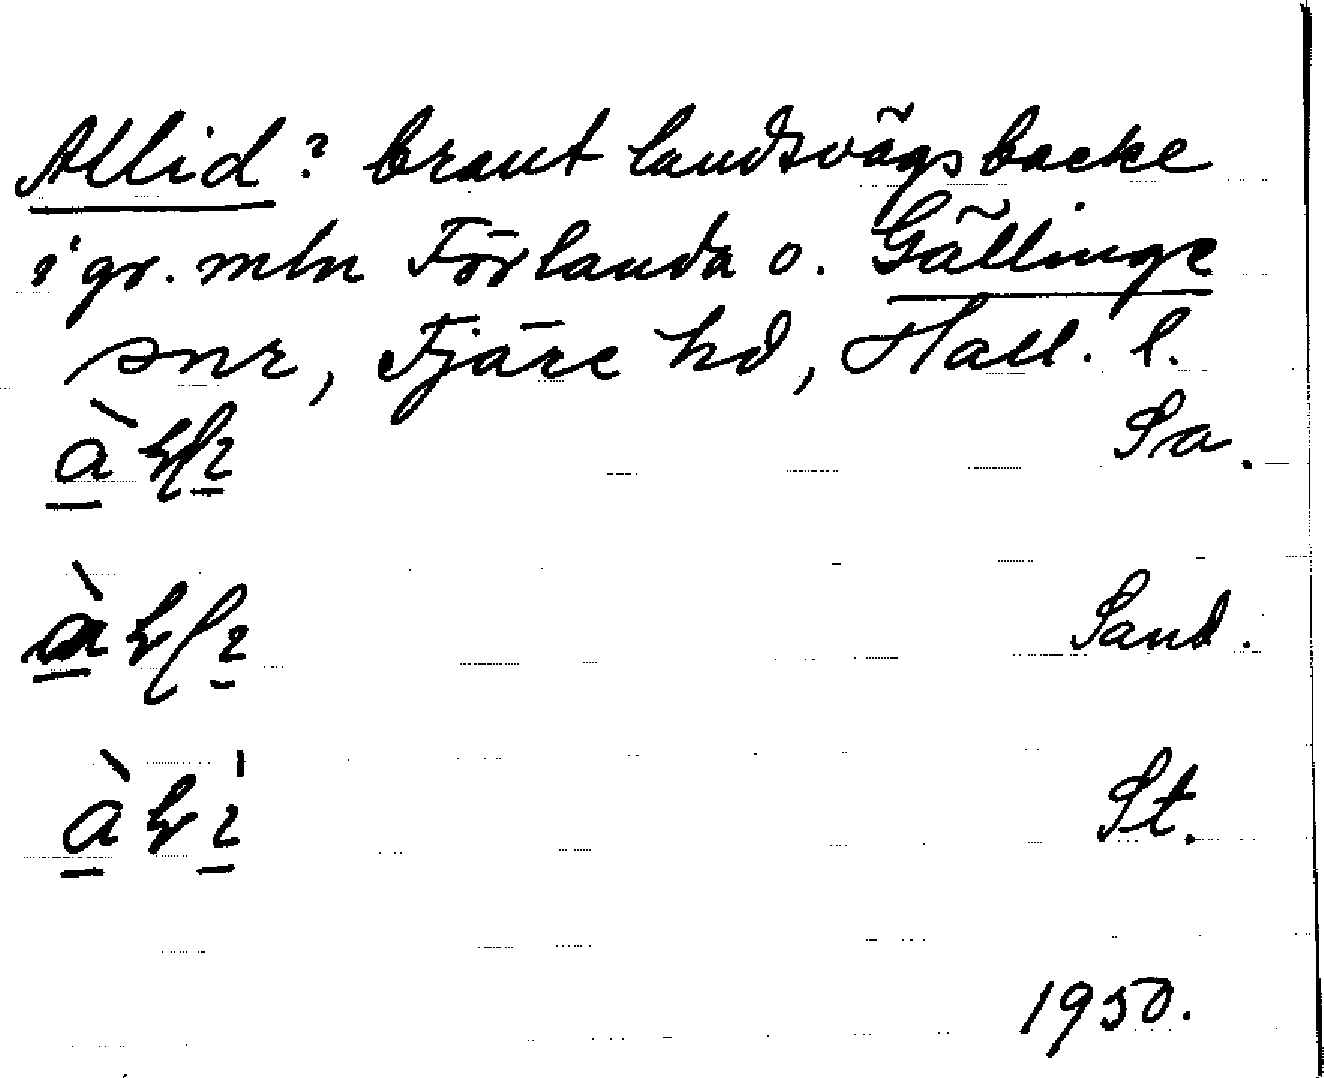 Allid? brant landsvägsbacke
i gr. mln Förlanda o. Gällinge
snr, Fjäre hd, Hall. l.
Sa.
Sand.
St.
1950.